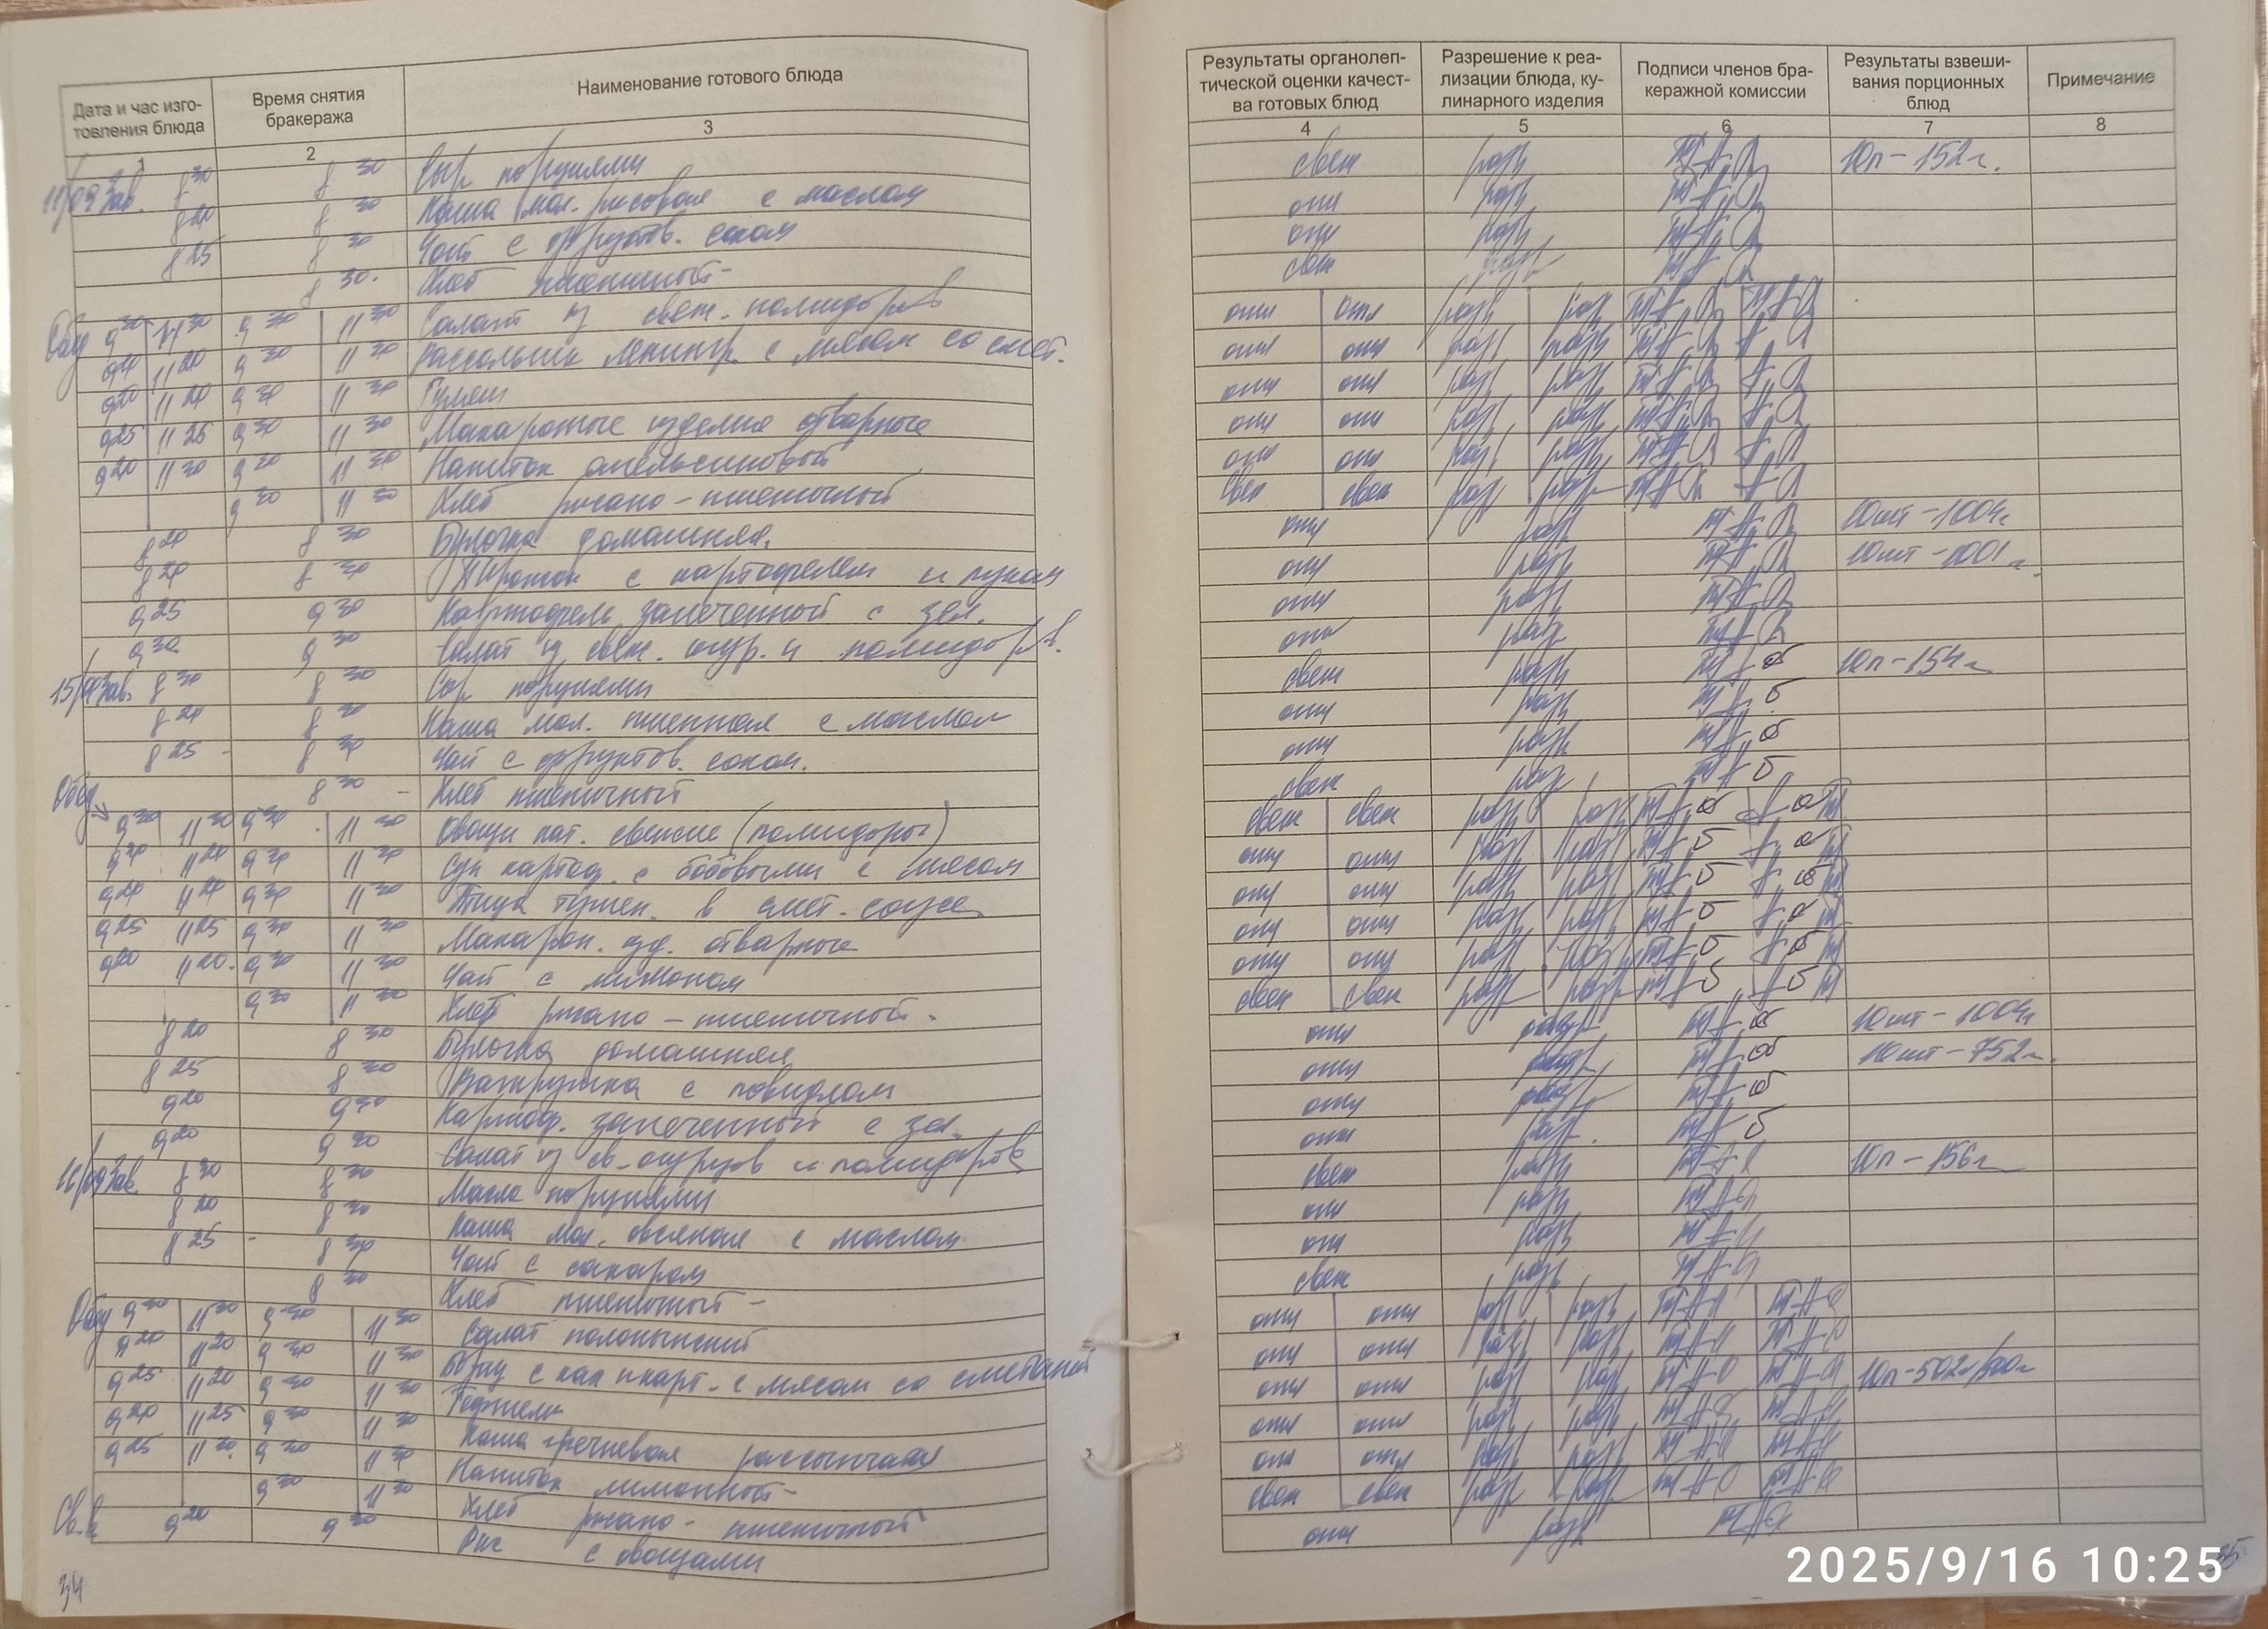 Дата и час изго-
товления блюда
Время снятия
бракеража
Наименование готового блюда
1
2
3
11/09 Зав. 8 30 8 30 Сыр порциями
8 20 8 30 Каша мол. рисовая с маслом
8 25 8 30 Чай с фруктов. соком
8 30. Хлеб пшеничный
Обед 9 30 11 30 9 30 11 30 Салат из свеж. помидоров
9 20 11 20 9 30 11 30 Рассольник Ленингр. с мясом со смет.
9 20 11 20 9 30 11 30 Гуляш
9 25 11 25 9 30 11 30 Макаронные изделия отварные
9 20 11 30 9 30 11 30 Напиток апельсиновый
9 30 11 30 Хлеб ржано-пшеничный
8 20 8 30 Булочка домашняя.
8 20 8 30 Пирожок с картофелем и луком
9 25 9 30 Картофель запеченный с зел.
9 30 9 30 Салат из свеж. огур. и помидоров.
15/09 Зав. 8 30 8 30 Сыр порциями
8 20 8 30 Каша мол. пшенная с маслом
8 25 - 8 30 Чай с фруктов. соком.
8 30 - Хлеб пшеничный
Обед 9 30 11 30 9 30 11 30 Овощи нат. свежие (помидоры)
9 20 11 20 9 30 11 30 Суп картоф. с бобовыми с мясом
9 20 11 20 9 30 11 30 Птица тушен. в смет. соусе
9 25 11 25 9 30 11 30 Макарон. изд. отварные
9 20 11 20. 9 30 11 30 Чай с лимоном
9 30 11 30 Хлеб ржано-пшеничный.
8 20 8 30 Булочка домашняя
8 25 8 30 Ватрушка с повидлом
9 20 9 30 Картоф. запеченный с зел.
9 20 9 30 Салат из св. огурцов и помидоров
16/09 Зав. 8 30 8 30 Масло порциями
8 20 8 30 Каша мол. овсяная с маслом
8 25 - 8 30 Чай с сахаром
8 30 Хлеб пшеничный -
Обед 9 30 11 30 9 30 11 30 Салат полонынский
9 20 11 20 9 30 11 30 Борщ с кап и карт. с мясом со сметаной
9 25 11 20 9 30 11 30 Тефтели
9 20 11 25 9 30 11 30 Каша гречневая рассыпчатая
9 25 11 20. 9 30 11 30 Напиток лимонный -
9 30 11 30 Хлеб ржано-пшеничный
9 20 9 30 Рис с овощами
34
Результаты органолеп-
тической оценки качест-
ва готовых блюд
Разрешение к реа-
лизации блюда, ку-
линарного изделия
Подписи членов бра-
керажной комиссии
Результаты взвеши-
вания порционных
блюд
Примечание
4
5
6
7
8
свеж разр 10п - 152г.
отл разр
отл разр
свеж разр
отл отл разр разр
отл отл разр разр
отл отл разр разр
отл отл разр разр
отл отл разр разр
свеж свеж разр разр
отл разр 10шт - 1004г
отл разр 10шт - 1001г.
отл разр
отл разр
свеж разр 10п - 154г
отл разр
отл разр
свеж разр
свеж свеж разр разр
отл отл разр разр
отл отл разр разр
отл отл разр разр
отл отл разр разр
свеж свеж разр разр
отл разр 10шт - 1004г
отл разр 10шт - 752г.
отл разр
отл разр
свеж разр 10п - 156г
отл разр
отл разр
свеж разр
отл отл разр разр
отл отл разр разр
отл отл разр разр 10п - 502г/300г
отл отл разр разр
отл отл разр разр
свеж свеж разр разр
отл разр
35
2025/9/16 10:25